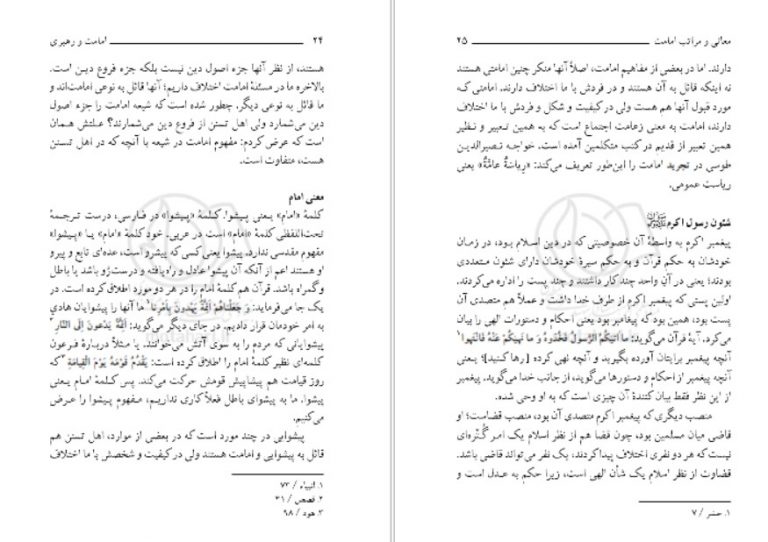 امامت و رهبری ۲۴
هستند، از نظر آنها جزء اصول دین نیست بلکه جزء فروع دین است.
بالاخره ما در مسئلهٔ امامت اختلاف داریم؛ آنها قائل به نوعی امامت‌اند و
ما قائل به نوعی دیگر. چطور شده است که شیعه امامت را جزء اصول
دین می‌شمارد ولی اهل تسنن از فروع دین می‌شمارند؟ علتش همان
است که عرض کردم: مفهوم امامت در شیعه با آنچه که در اهل تسنن
هست، متفاوت است.
معنی امام
کلمهٔ «امام» یعنی پیشوا. کلمهٔ «پیشوا» در فارسی، درست ترجمهٔ
تحت‌اللفظی کلمهٔ «امام» است در عربی. خود کلمهٔ «امام» یا «پیشوا»
مفهوم مقدسی ندارد. پیشوا یعنی کسی که پیشرو است، عده‌ای تابع و پیرو
او هستند اعم از آنکه آن پیشوا عادل و راه یافته و درست‌رو باشد یا باطل
و گمراه باشد. قرآن هم کلمهٔ امام را در هر دو مورد اطلاق کرده است. در
یک جا می‌فرماید: وَ جَعَلْناهُمْ اَئِمَّةً یَهْدونَ بِاَمْرِنا ۱ ما آنها را پیشوایان هادیِ
به امر خودمان قرار دادیم. در جای دیگر می‌گوید: اَئِمَّةً یَدْعونَ اِلَی النّارِ ۲
پیشوایانی که مردم را به سوی آتش می‌خوانند. یا مثلاً دربارهٔ فرعون
کلمه‌ای نظیر کلمهٔ امام را اطلاق کرده است: یَقْدُمُ قَوْمَهُ یَوْمَ الْقِیامَةِ ۳ که
روز قیامت هم پیشاپیش قومش حرکت می‌کند. پس کلمهٔ امام یعنی
پیشوا. ما به پیشوای باطل فعلاً کاری نداریم، مفهوم پیشوا را عرض
می‌کنیم.
پیشوایی در چند مورد است که در بعضی از موارد، اهل تسنن هم
قائل به پیشوایی و امامت هستند ولی در کیفیت و شخصش با ما اختلاف
۱. انبیاء / ۷۳
۲. قصص / ۴۱
۳. هود / ۹۸
معانی و مراتب امامت ۲۵
دارند. اما در بعضی از مفاهیم امامت، اصلاً آنها منکر چنین امامتی هستند
نه اینکه قائل به آن هستند و در فردش با ما اختلاف دارند. امامتی که
مورد قبول آنها هم هست ولی در کیفیت و شکل و فردش با ما اختلاف
دارند، امامت به معنی زعامت اجتماع است که به همین تعبیر و نظیر
همین تعبیر از قدیم در کتب متکلمین آمده است. خواجه نصیرالدین
طوسی در تجرید امامت را این‌طور تعریف می‌کند: «رِیاسَةٌ عامَّةٌ» یعنی
ریاست عمومی.
شئون رسول اکرم ﷺ
پیغمبر اکرم به واسطهٔ آن خصوصیتی که در دین اسلام بود، در زمان
خودشان به حکم قرآن و به حکم سیرهٔ خودشان دارای شئون متعددی
بودند؛ یعنی در آنِ واحد چند کار داشتند و چند پست را اداره می‌کردند.
اولین پستی که پیغمبر اکرم از طرف خدا داشت و عملاً هم متصدی آن
پست بود، همین بود که پیغمبر بود یعنی احکام و دستورات الهی را بیان
می‌کرد. آیهٔ قرآن می‌گوید: ما اتیکُمُ الرَّسولُ فَخُذوهُ وَ ما نَهیکُمْ عَنْهُ فَانْتَهوا ۱
آنچه پیغمبر برایتان آورده بگیرید و آنچه نهی کرده [رها کنید]؛ یعنی
آنچه پیغمبر از احکام و دستورها می‌گوید، از جانب خدا می‌گوید. پیغمبر
از این نظر فقط بیان کنندهٔ آن چیزی است که به او وحی شده.
منصب دیگری که پیغمبر اکرم متصدی آن بود، منصب قضاست؛ او
قاضی میان مسلمین بود، چون قضا هم از نظر اسلام یک امر گُتره‌ای
نیست که هر دو نفری اختلاف پیدا کردند، یک نفر می‌تواند قاضی باشد.
قضاوت از نظر اسلام یک شأن الهی است، زیرا حکم به عدل است و
۱. حشر / ۷